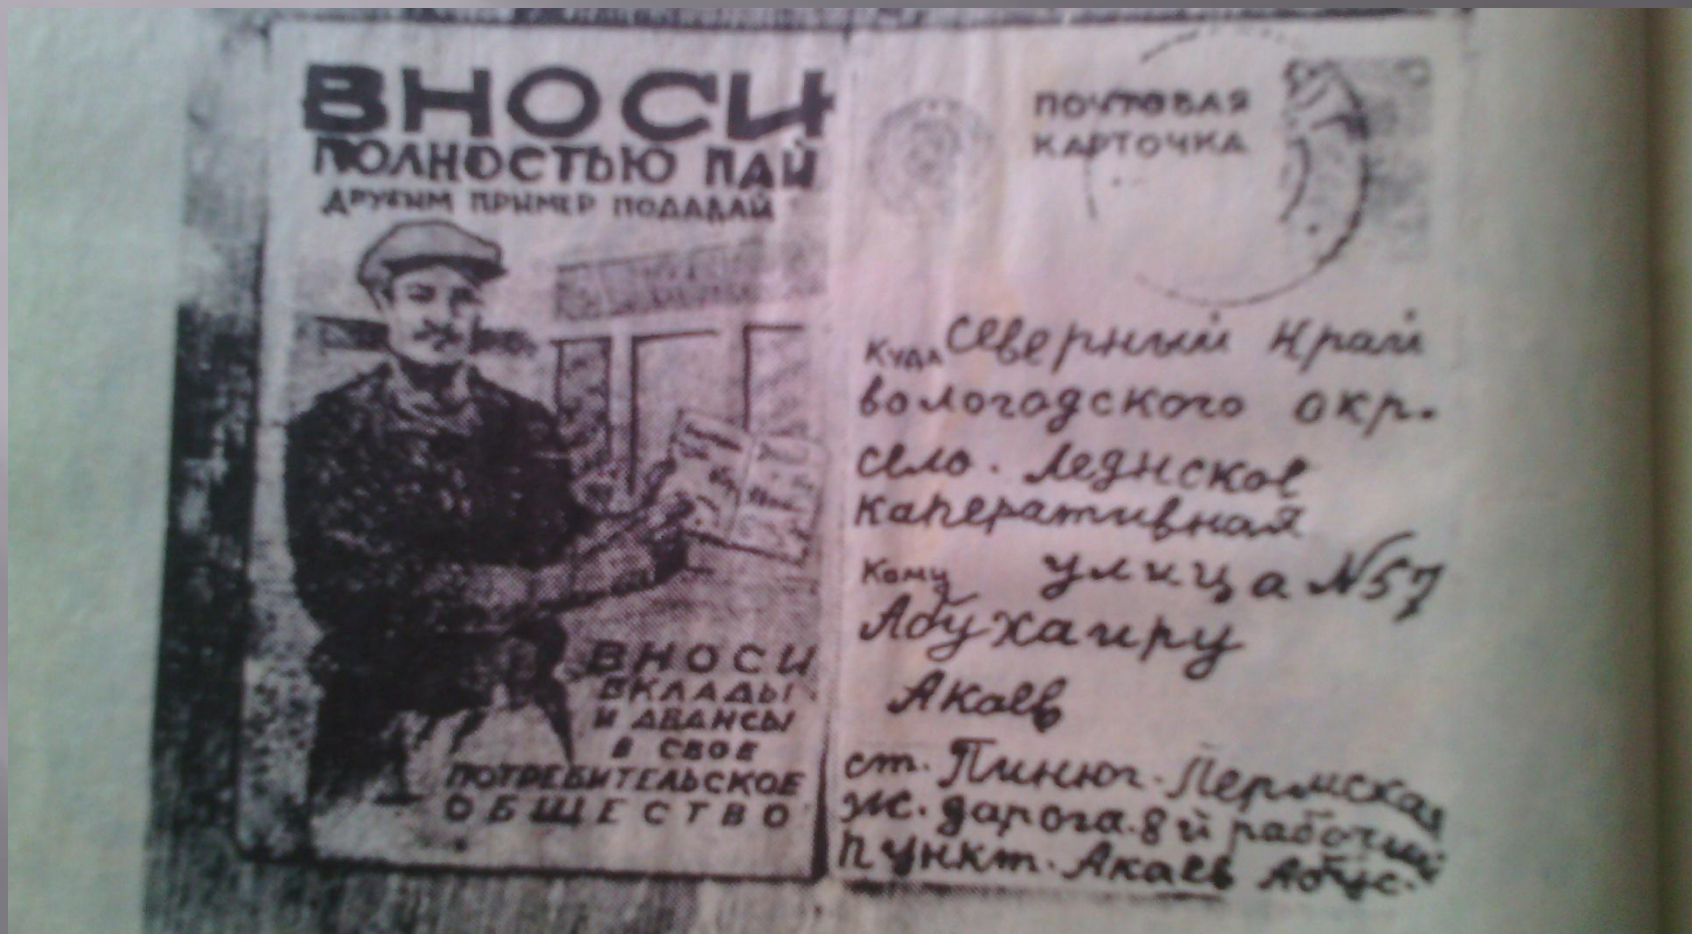 ВНОСИ
ПОЛНОСТЬЮ ПАЙ
ДРУГИМ ПРИМЕР ПОДАВАЙ
ВНОСИ
ВКЛАДЫ
И АВАНСЫ
В СВОЕ
ПОТРЕБИТЕЛЬСКОЕ
ОБЩЕСТВО
ПОЧТОВАЯ
КАРТОЧКА
Куда Северный Край
вологодского окр.
село. Леднское
каперативная
Кому улица №57
Абухаиру
Акаев
ст. Пинюг. Пермская
ж. дарога. 8й рабочий
пункт. Акаев Абус.